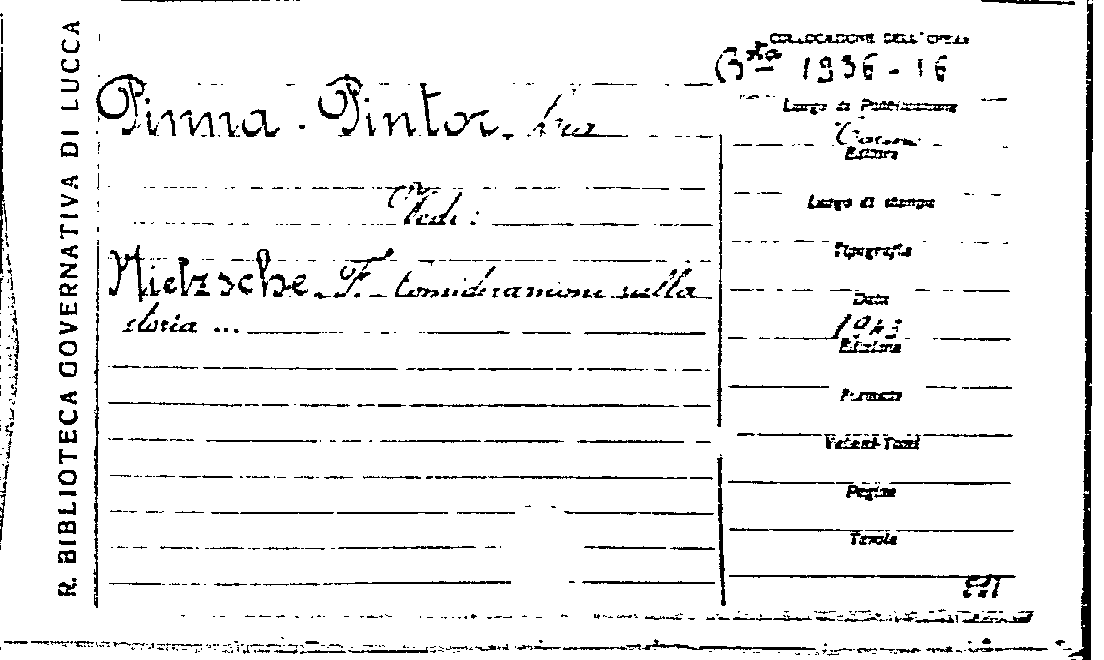 R. BIBLIOTECA GOVERNATIVA DI LUCCA
COLLOCAZIONE DELL'OPERA
Bta 1936-16
Pinna-Pintor. trad
Vedi:
Nietzsche. F. Considerazioni sulla
storia ...
Luogo di Pubblicazione
Torino
Editore
Luogo di stampa
Tipografia
Data
1943
Edizione
Formato
Volumi-Tomi
Pagine
Tavole